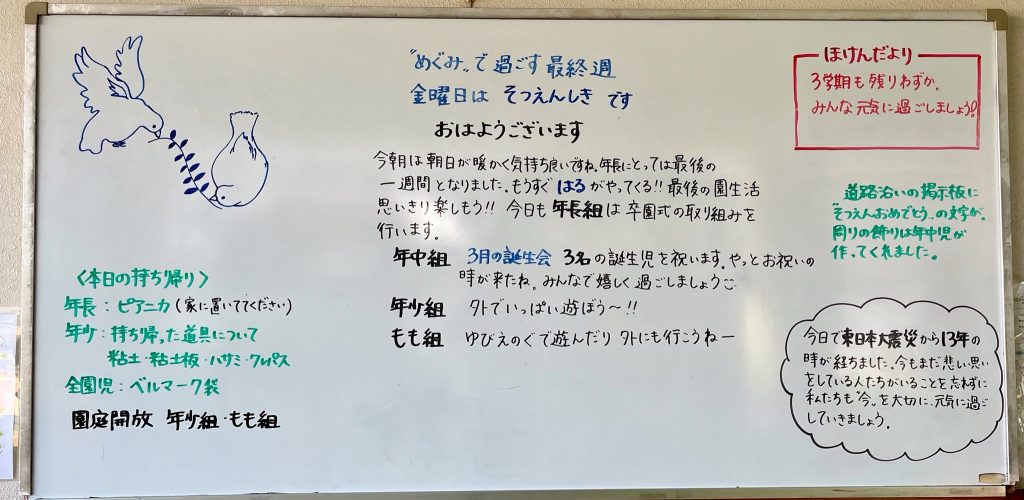 "めぐみ"で過ごす最終週
金曜日は そつえんしき です
おはようございます
今朝は朝日が暖かく気持ち良いですね。年長にとっては最後の
一週間となりました。もうすぐ はる がやってくる!! 最後の園生活
思いきり楽しもう!! 今日も 年長組 は 卒園式の取り組みを
行います。
年中組 3月の誕生会 3名の誕生児を祝います。やっとお祝いの
時が来たね。みんなで嬉しく過ごしましょう
年少組 外でいっぱい遊ぼう〜!!
もも組 ゆびえのぐで遊んだり 外にも行こうねー
〈本日の持ち帰り〉
年長：ピアニカ(家に置いててください)
年少：持ち帰った道具について
粘土・粘土板・ハサミ・クレパス
全園児：ベルマーク袋
園庭開放 年少組・もも組
ほけんだより
3学期も残りわずか。
みんな元気に過ごしましょう!
道路沿いの掲示板に
"そつえんおめでとう"の文字が。
周りの飾りは年中児が
作ってくれました。
今日で東日本大震災から13年の
時が経ちました。今もまだ悲しい思い
をしている人たちがいることを忘れずに
私たちも"今"を大切に、元気に過ご
していきましょう。